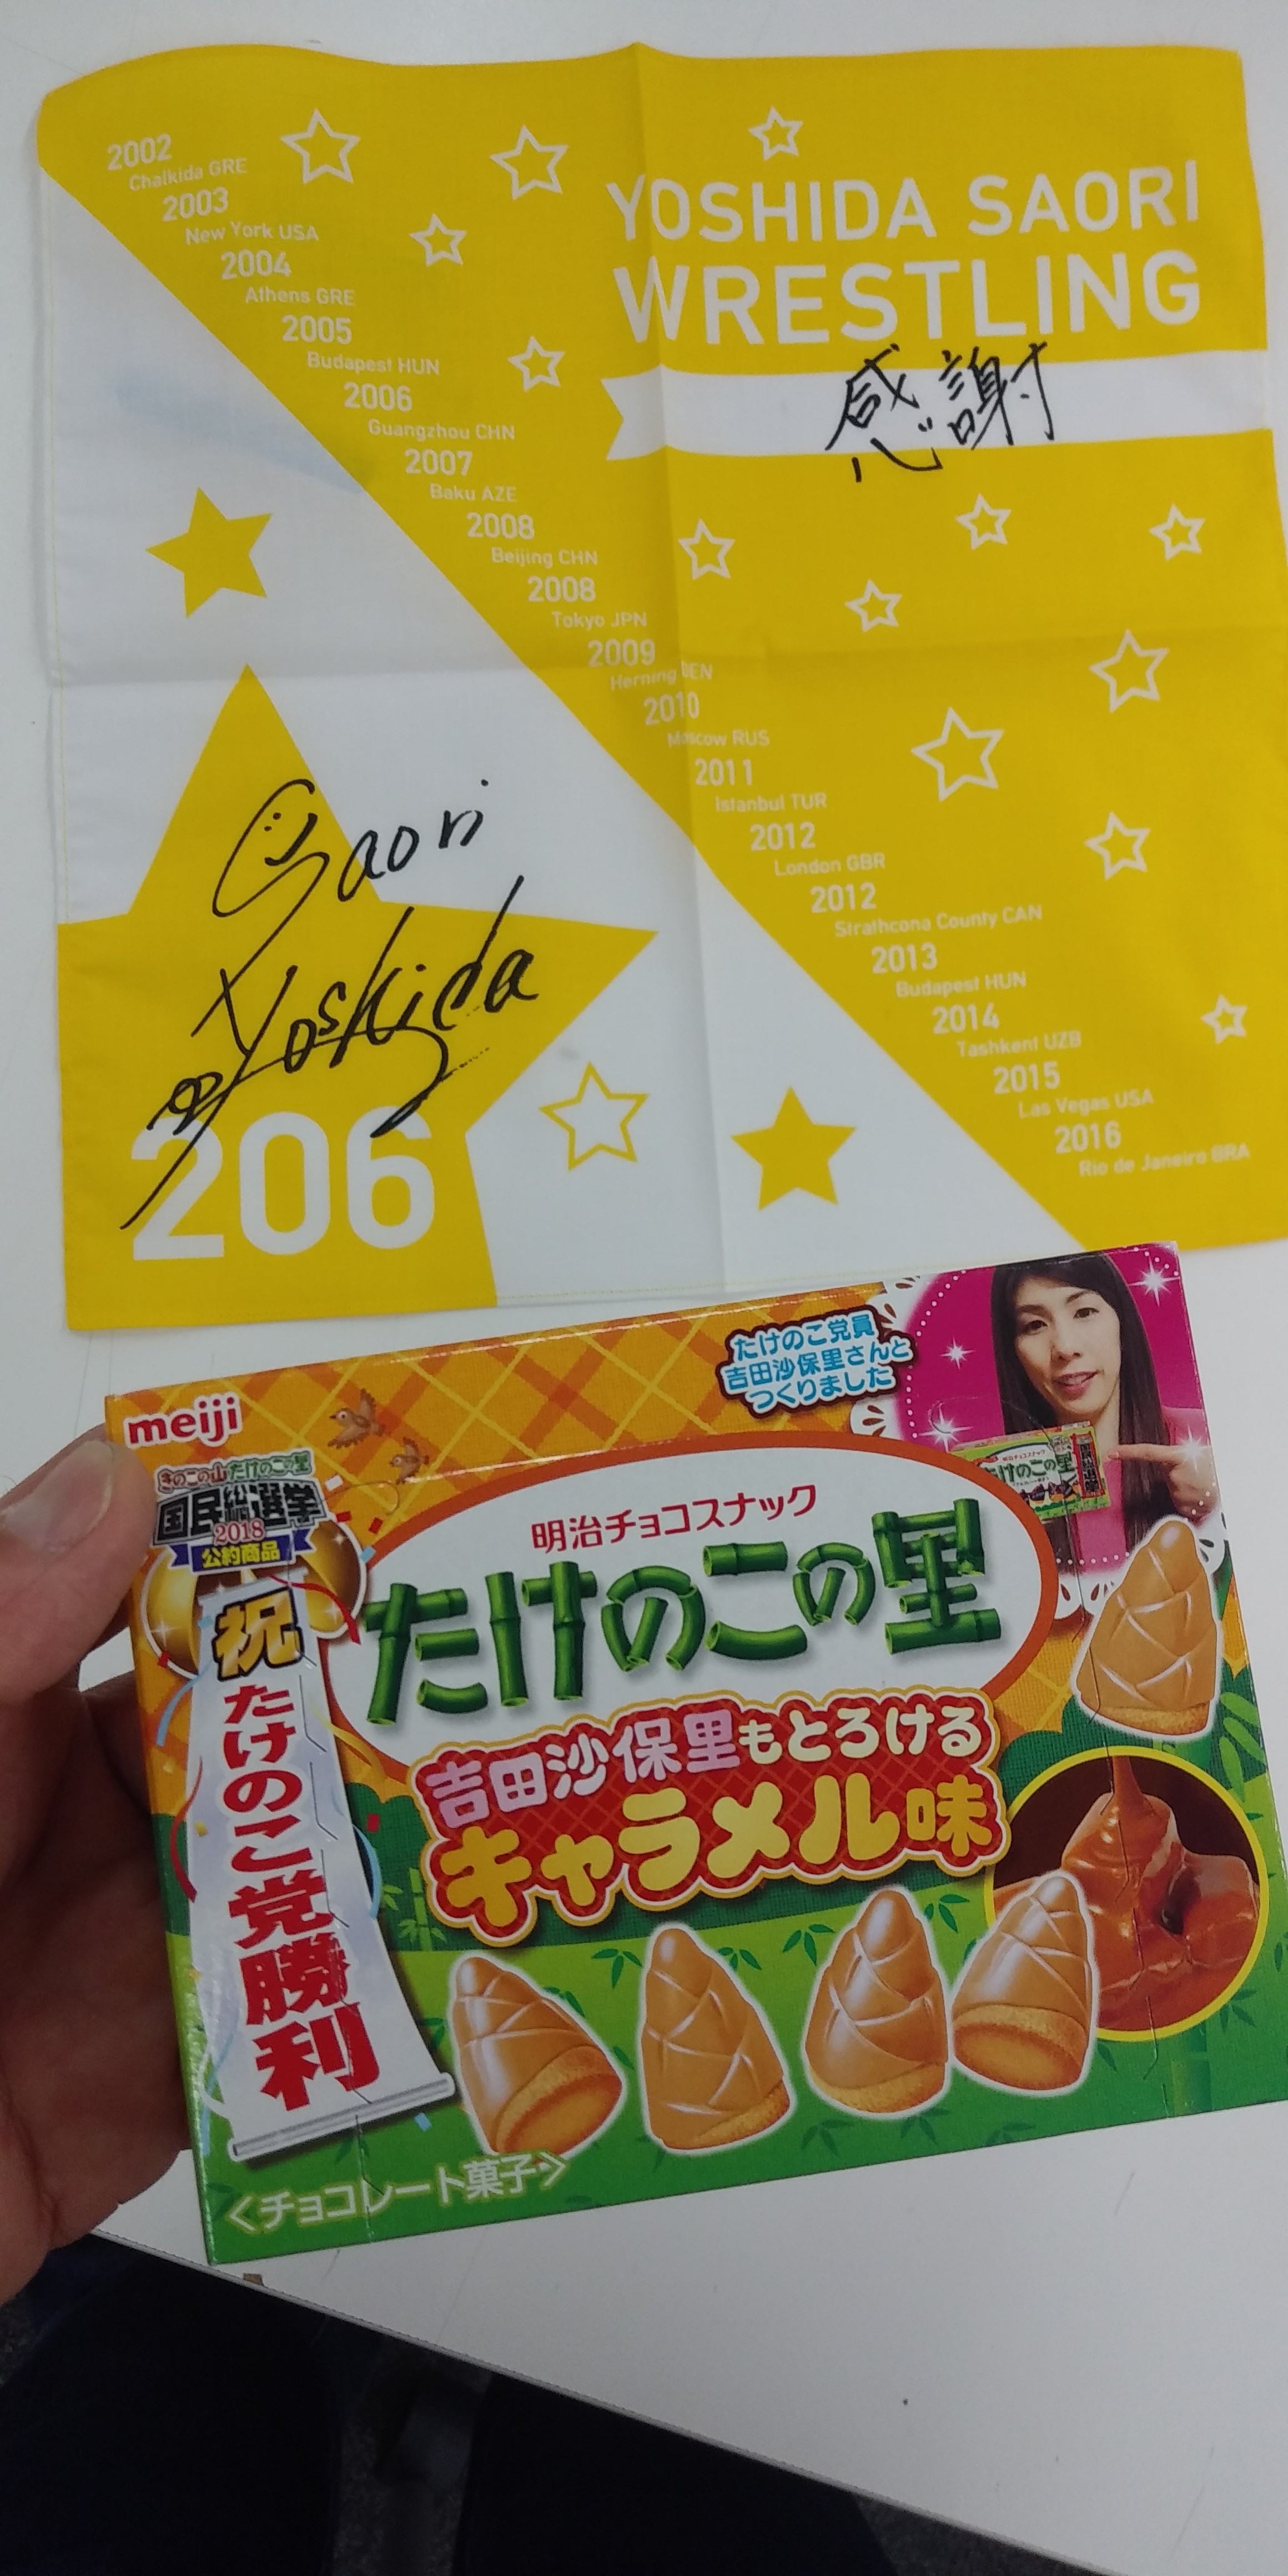 2002
Chalkida GRE
2003
New York USA
2004
Athens GRE
2005
Budapest HUN
2006
Guangzhou CHN
2007
Baku AZE
2008
Beijing CHN
2008
Tokyo JPN
2009
Herning DEN
2010
Moscow RUS
2011
Istanbul TUR
2012
London GBR
2012
Strathcona County CAN
2013
Budapest HUN
2014
Tashkent UZB
2015
Las Vegas USA
2016
Rio de Janeiro BRA
YOSHIDA SAORI
WRESTLING
感謝
Saori
Yoshida
206
meiji
きのこの山たけのこの里
国民総選挙
2018
公約商品
祝
たけのこ党勝利
たけのこ党員
吉田沙保里さんと
つくりました
明治チョコスナック
たけのこの里
吉田沙保里もとろける
キャラメル味
<チョコレート菓子>
明治チョコスナック
たけのこの里